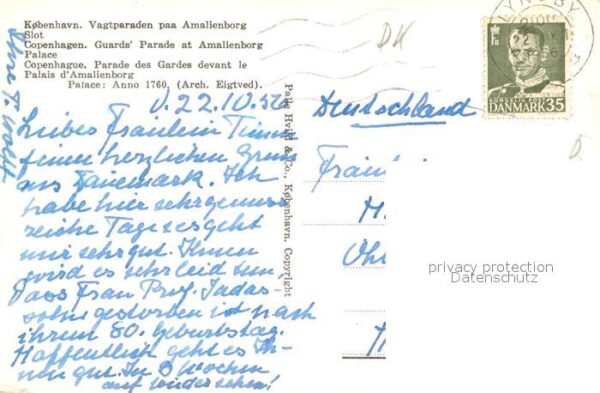 København. Vagtparaden paa Amalienborg
Slot
Copenhagen. Guards' Parade at Amalienborg
Palace
Copenhague. Parade des Gardes devant le
Palais d'Amalienborg
Palace: Anno 1760. (Arch. Eigtved).
d. 22.IV.56
Liebes Fräulein Timm
einen herzlichen Gruss
aus Dänemark. Ich
habe hier sehr genuss
reiche Tage es geht
mir sehr gut. Ihnen
wird es sehr leid tun,
dass Frau Prof. Jadas-
sohn gestorben ist nach
ihrem 80. Geburtstag.
Hoffentlich geht es Ih-
nen gut. In 3 Wochen
auf wiedersehen!
Ihre T.
Palle Hvild & Co., København. Copyright
DK
Deutschland
LYNGBY
22
DANMARK 35
privacy protection
Datenschutz